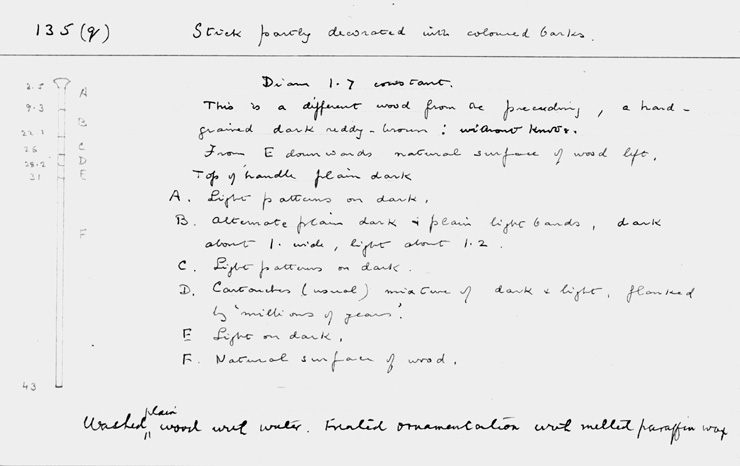 135(q) Stick partly decorated with coloured barks.
Diam 1.7 constant.
This is a different wood from the preceeding, a hard-
grained dark reddy-brown: without knots.
From E downwards natural surface of wood left.
Top of handle plain dark
A. Light patterns on dark.
B. Alternate plain dark & plain light bands, dark
about 1. wide, light about 1.2.
C. Light patterns on dark.
D. Cartouches (usual) mixture of dark & light, flanked
by 'millions of years'.
E Light on dark.
F. Natural surface of wood.
2.5
A
9.3
B
22.1
C
26
D
28.2
E
31
F
43
Washed plain wood with water. Treated ornamentation with melted paraffin wax